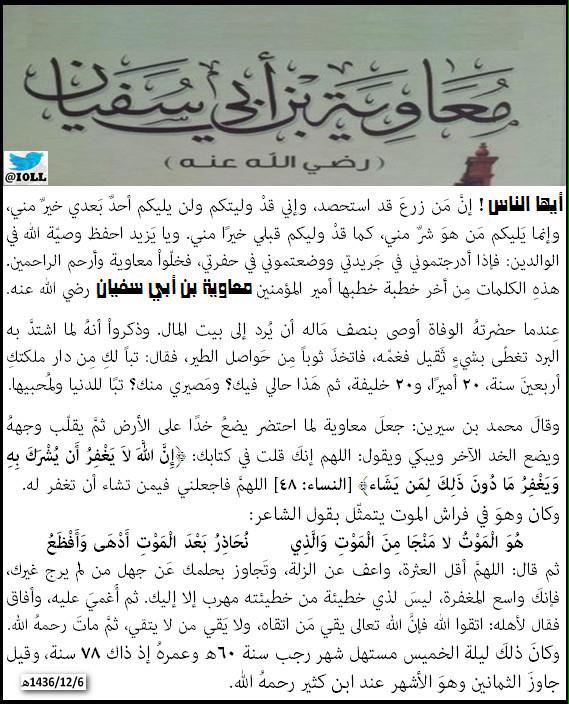 معاوية بن أبي سفيان
(رضي الله عنه)
@IOLL
أيها الناس! إنَّ مَن زرعَ قد استحصد، وإني قدْ وليتكم ولن يليكم أحدٌ بَعدي خيرٌ مني،
وإنما يَليكم مَن هوَ شرٌ مني، كما قدْ وليكم قبلي خيرًا مني. ويا يَزيد احفظ وصيّة الله في
الوالدين: فإذا أدرجتموني في جَريدتي ووضعتموني في حفرتي، فخلّوا معاوية وأرحم الراحمين.
هذهِ الكلمات مِن أخر خطبة خطبها أمير المؤمنين معاوية بن أبي سفيان رضي الله عنه.
عِندما حضرتهُ الوفاة أوصى بنصف مَاله أن يُرد إلى بيت المال. وذكرواْ أنهُ لما اشتدْ به
البرد تغطّى بشيءٍ ثَقيل فغمّه، فاتخذَ ثوباً مِن حَواصل الطير، فقال: تباً لكِ مِن دار ملكتكِ
أربعينَ سنة، ٢٠ أميرًا، و٢٠ خليفة، ثم هَذا حالي فيك؟ ومَصيري منك؟ تبًا للدنيا ولمُحبيها.
وقالَ محمد بن سيرين: جعلَ معاوية لما احتضر يضعُ خدًا على الأرض ثمَّ يقلّب وجههُ
ويضع الخد الآخر ويبكي ويقول: اللهم إنكَ قلت في كتابك: ﴿إِنَّ اللَّهَ لاَ يَغْفِرُ أَن يُشْرَكَ بِهِ
وَيَغْفِرُ مَا دُونَ ذَلِكَ لِمَن يَشَاء﴾ [النساء: ٤٨] اللهمَّ فاجعلني فيمن تشاء أن تغفر له.
وكان وهوَ في فراش الموت يتمثّل بقول الشاعر:
هُوَ الْمَوْتُ لا مَنْجَا مِنَ الْمَوْتِ وَالَّذِي نُحَاذِرُ بَعْدَ الْمَوْتِ أَدْهَى وَأَفْظَعُ
ثم قال: اللهمَّ أقل العثرة، واعف عن الزلة، وتَجاوز بحلمك عَن جهل من لم يرج غيرك،
فإنكَ واسع المغفرة، ليسَ لذي خطيئة من خطيئته مهرب إلا إليك. ثم أغميَ عليه، وأفاق
فقال لأهله: اتقوا الله فإنَّ الله تعالى يقي مَن اتقاه، ولا يَقي من لا يتقي، ثمَّ ماتَ رحمهُ الله.
وكانَ ذلكَ ليلة الخميس مستهل شهر رجب سنة ٦٠هـ وعمرهُ إذ ذاك ٧٨ سنة، وقيل
جاوزَ الثمانين وهوَ الأشهر عند ابن كثير رحمهُ الله.
1436/12/6هـ